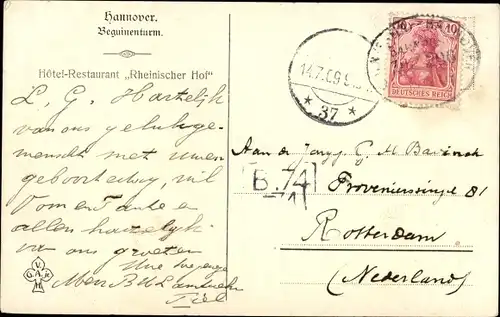 Hannover.
Beguinenturm.
Hôtel-Restaurant „Rheinischer Hof"
L. G. Hartelijk
van ons geluk ge-
wenscht met uwen
geboortedag, wil
Oom en Tante en
allen hartelijk
van ons groeten
Uwe
Tiel
V.
G. A. K.
H.
14.7.09.
* 37 *
10
DEUTSCHES REICH
Aan de Jongj. C. M. Bavinck
B. 74
Proveniersingel 81
Rotterdam
(Nederland)